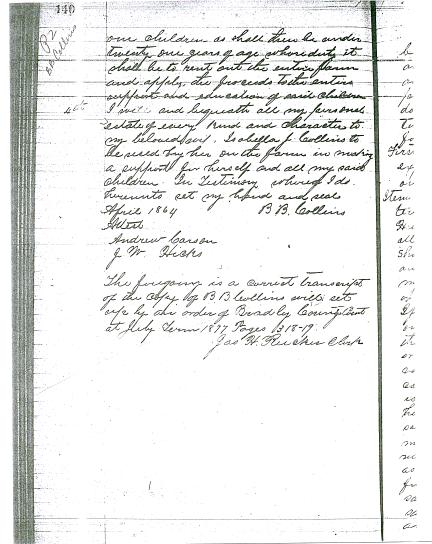 140
B B Collins
our children as shall then be under
twenty one years of age whose duty it
shall be to rent out the entire farm
and apply the proceeds to the entire
support and education of said children
4th I will and bequeath all my personal
estate of every kind and character to
my beloved wife Isabella J Collins to
be used by her on the farm in making
a support for herself and all my said
children. In Testimony whereof I do
hereunto set my hand and seal
April 1864 B B. Collins
Attest
Andrew Carson
J W. Hicks
The foregoing is a correct transcript
of the copy of B B Collins will set
up by an order of Bradley County Court
at July Term 1877 Pages 318-19.
Jas H. Rucker Clerk